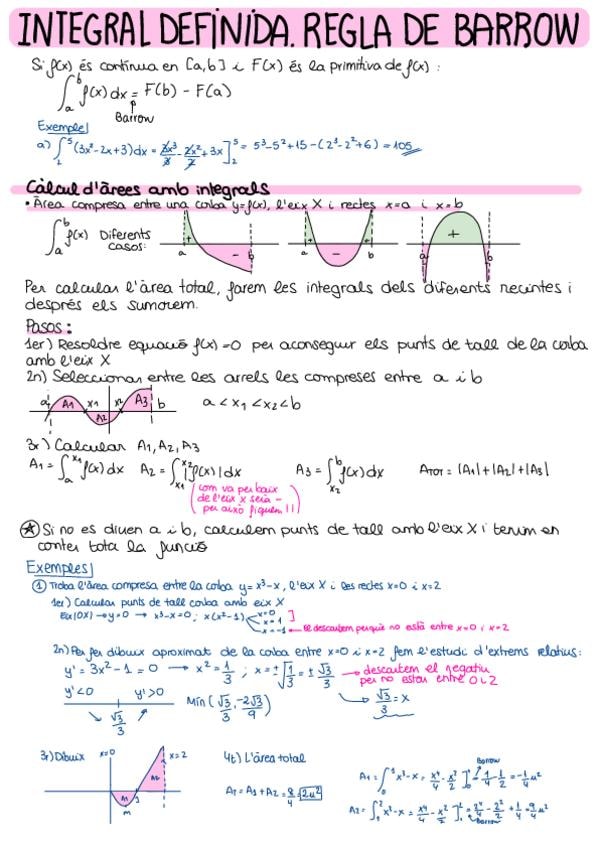 INTEGRAL DEFINIDA. REGLA DE BARROW
Si f(x) és contínua en [a,b] i F(x) és la primitiva de f(x):
∫ₐᵇ f(x) dx = F(b) - F(a)
Barrow
Exemple
a) ∫₂⁵ (3x²-2x+3)dx = 3x³/3 - 2x²/2 + 3x ]₂⁵ = 5³-5²+15-(2³-2²+6) = 105
Càlcul d'àrees amb integrals
• Àrea compresa entre una corba y=f(x), l'eix X i rectes x=a i x=b
∫ₐᵇ f(x) Diferents casos:
+ - a b
+ - + a b
+ a b
Per calcular l'àrea total, farem les integrals dels diferents recintes i
després els sumarem.
Pasos:
1er) Resoldre equació f(x)=0 per aconseguir els punts de tall de la corba
amb l'eix X
2n) Seleccionar entre les arrels les compreses entre a i b
a A1 x1 A2 x2 A3 b a<x1<x2<b
3r) Calcular A1, A2, A3
A1 = ∫ₐˣ¹ f(x) dx A2 = ∫ₓ₁ˣ² |f(x)| dx A3 = ∫ₓ₂ᵇ f(x) dx ATOT = |A1|+|A2|+|A3|
(com va per baix
de l'eix x seria -
per això fiquem | |)
★ Si no es diuen a i b, calculem punts de tall amb l'eix X i tenim en
compte tota la funció
Exemples
① Troba l'àrea compresa entre la corba y=x³-x, l'eix X i les rectes x=0 i x=2
1er) Calcular punts de tall corba amb eix X
Eix(OX) → y=0 → x³-x=0; x(x²-1) x=0
x=1
x=-1 → El descartem perquè no està entre x=0 i x=2
2n) Per fer dibuix aproximat de la corba entre x=0 i x=2 fem l'estudi d'extrems relatius:
y' = 3x²-1 = 0 → x² = 1/3 ; x = ±√1/3 = ± √3/3 → descartem el negatiu
per no estar entre 0 i 2
y'<0 y'>0 √3/3 Min (√3/3, -2√3/9) → √3/3 = x
3r) Dibuix x=0 x=2 A1 A2 1 m
4t) L'àrea total
AT = A1 + A2 = 8/4 = 2u²
A1 = ∫₀¹ x³-x = x⁴/4 - x²/2 ]₀¹ = 1/4 - 1/2 = -1/4 u²
Barrow
A2 = ∫₁² x³-x = x⁴/4 - x²/2 ]₁² = 2⁴/4 - 2²/2 + 1/4 = 9/4 u²
Barrow